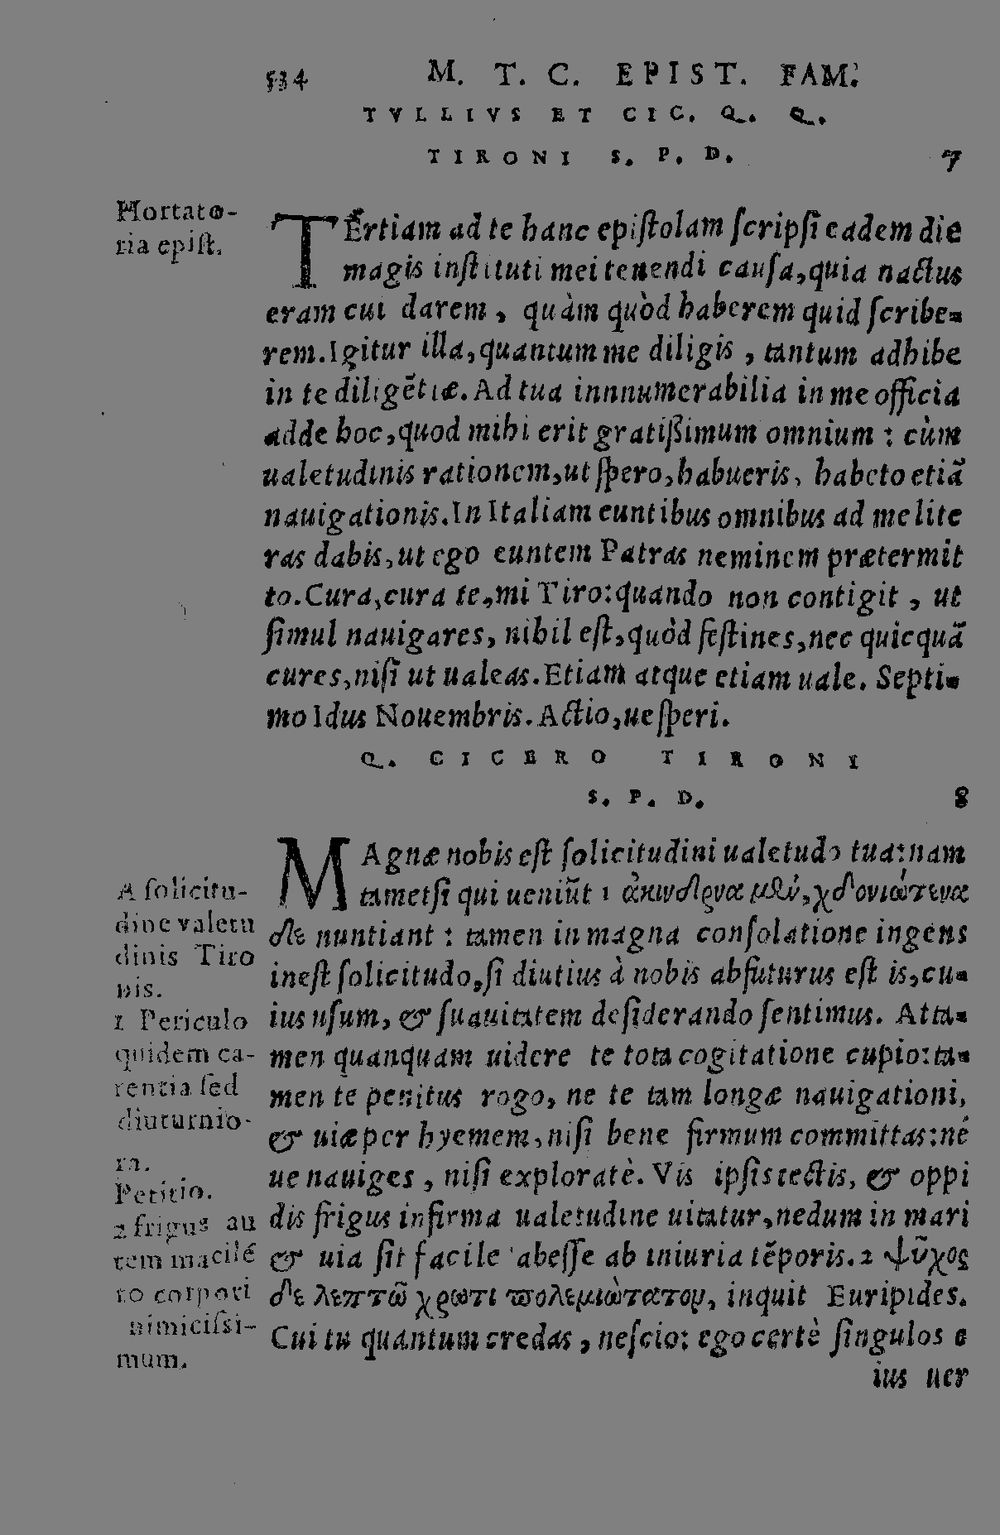 534 M. T. C. EPIST. FAM.
TVLLIVS ET CIC. Q. Q.
TIRONI S. P. D. 7
Hortato-
ria epiſt.
TErtiam ad te hanc epiſtolam ſcripſi eadem die
magis inſtituti mei tenendi cauſa, quia nactus
eram cui darem, quàm quòd haberem quid ſcribe-
rem. Igitur illa, quantum me diligis, tantum adhibe
in te diligẽtiæ. Ad tua innnumerabilia in me officia
adde hoc, quod mihi erit gratißimum omnium: cùm
ualetudinis rationem, ut ſpero, habueris, habeto etiã
nauigationis. In Italiam euntibus omnibus ad me lite
ras dabis, ut ego euntem Patras neminem prætermit
to. Cura, cura te, mi Tiro: quando non contigit, ut
ſimul nauigares, nihil eſt, quòd feſtines, nec quicquã
cures, niſi ut ualeas. Etiam atque etiam uale. Septi-
mo Idus Nouembris. Actio, ueſperi.
Q. CICERO TIRONI
S. P. D. 8
MAgnæ nobis eſt ſolicitudini ualetudo tua: nam
tametſi qui ueniũt 1 ἀκινδυνα μὲν, χρονιώτερα
δε nuntiant: tamen in magna conſolatione ingens
ineſt ſolicitudo, ſi diutius à nobis abfuturus eſt is, cu-
ius uſum, & ſuauitatem deſiderando ſentimus. Atta-
men quanquam uidere te tota cogitatione cupio: ta-
men te penitus rogo, ne te tam longæ nauigationi,
& uiæ per hyemem, niſi bene firmum committas: né
ue nauiges, niſi exploratè. Vis ipſis tectis, & oppi
dis frigus infirma ualetudine uitatur, nedum in mari
& uia ſit facile abeſſe ab iniuria tẽporis. 2 ψῦχος
δε λεπτῶ χρωτι πολεμιώτατον, inquit Euripides.
Cui tu quantum credas, neſcio: ego certè ſingulos e
ius uer
A ſolicitu-
dine valetu
dinis Tiro
nis.
1 Periculo
quidem ca-
rentia ſed
diuturnio-
ra.
Petitio.
2 frigus au
tem macilé
to corpori
nimiciſsi-
mum.